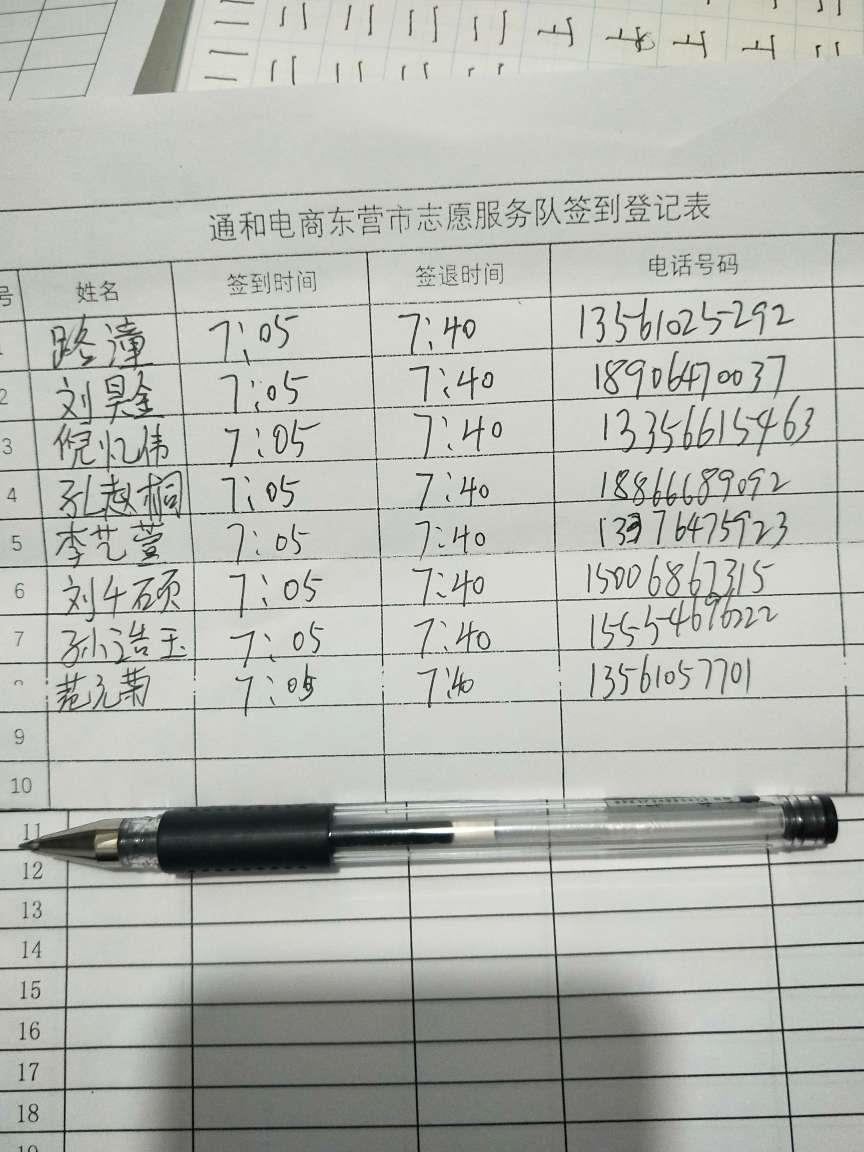 通和电商东营市志愿服务队签到登记表
号 姓名 签到时间 签退时间 电话号码
路漳 7:05 7:40 13561025292
2 刘昊金 7:05 7:40 18906470037
3 倪忆伟 7:05 7:40 13356615463
4 孔赵桐 7:05 7:40 18866689092
5 李艺萱 7:05 7:40 13376475923
6 刘千硕 7:05 7:40 15006867315
7 孙浩玉 7:05 7:40 15554696222
范元菊 7:05 7:40 13561057701
9
10
11
12
13
14
15
16
17
18
19